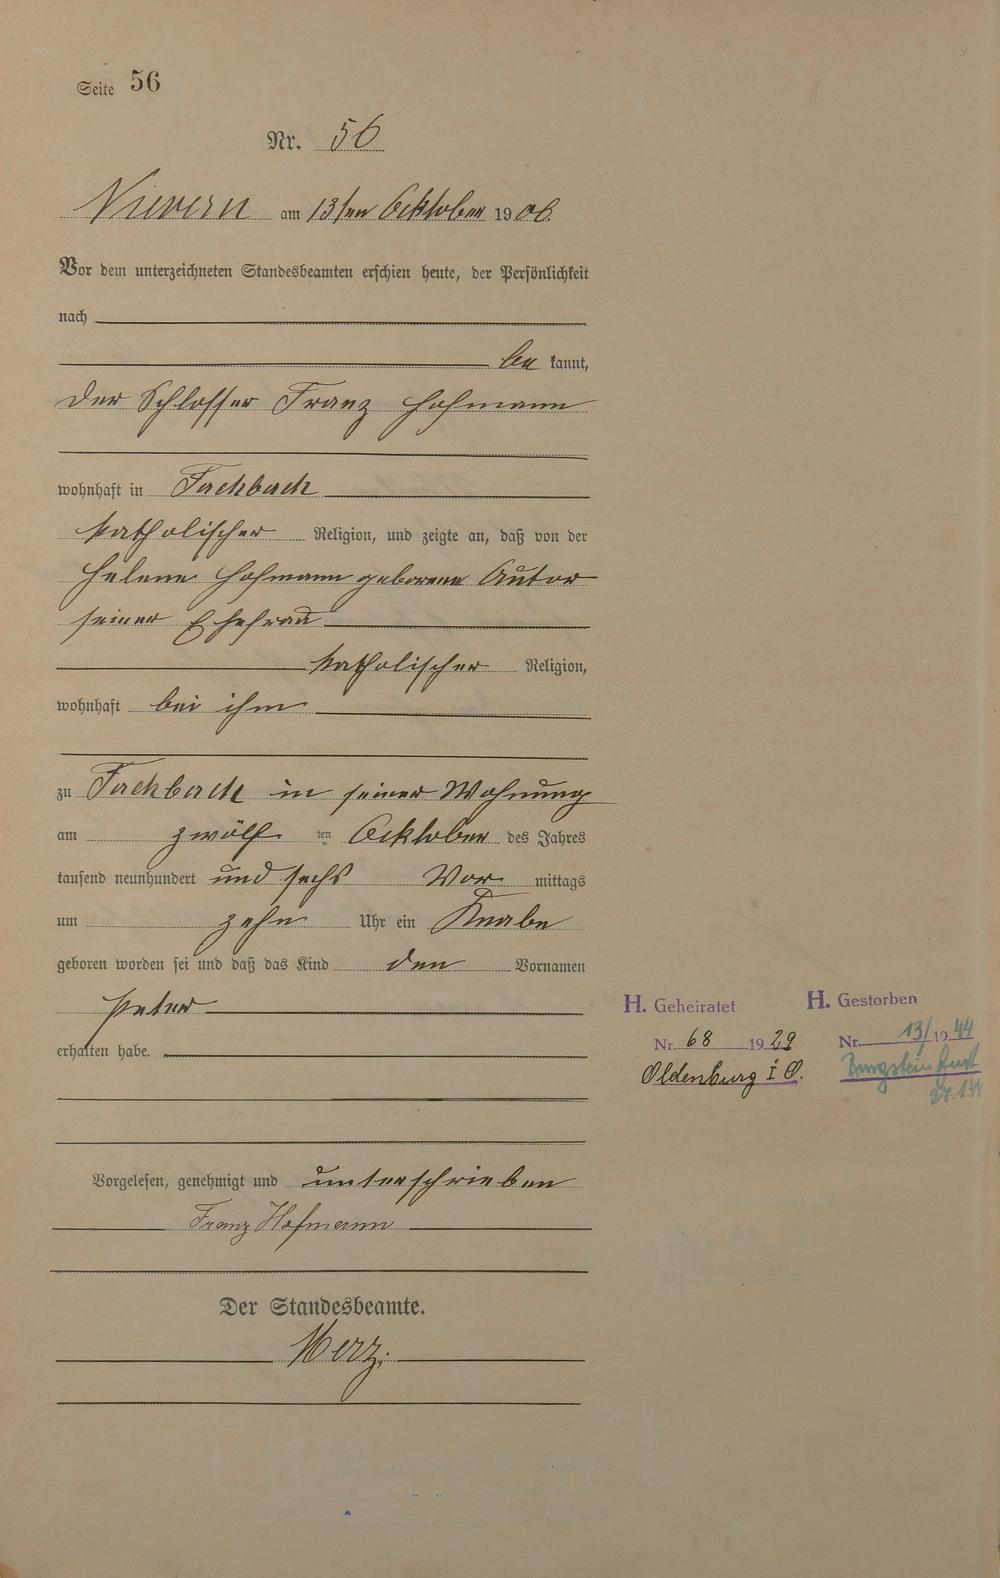 Seite 56
Nr. 56
Nievern am 13ten Ocktober 1906.
Vor dem unterzeichneten Standesbeamten erschien heute, der Persönlichkeit
nach
be kannt,
der Schlosser Franz Hofmann
wohnhaft in Fachbach
katholischer Religion, und zeigte an, daß von der
Helene Hofmann geborene Autor
seiner Ehefrau
katholischer Religion,
wohnhaft bei ihm
zu Fachbach in seiner Wohnung
am zwölf ten Ocktober des Jahres
tausend neunhundert und sechs Vor mittags
um zehn Uhr ein Knabe
geboren worden sei und daß das Kind den Vornamen
Peter
erhalten habe.
H. Geheiratet
Nr. 68 1929
Oldenburg i O.
H. Gestorben
Nr. 13/ 1944
Vorgelesen, genehmigt und unterschrieben
Franz Hofmann
Der Standesbeamte.
Merz.